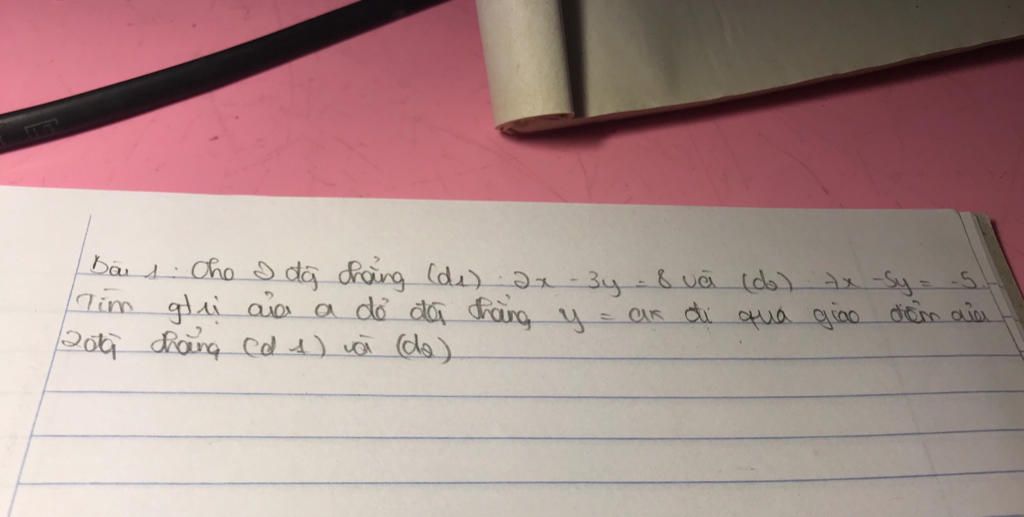 bài 1: Cho 2 đg thẳng (d1): 2x - 3y = 8 và (d2): 7x - 5y = -5
Tìm gtri của a để đg thẳng y = ax đi qua giao điểm của
2 đg thẳng (d1) và (d2)